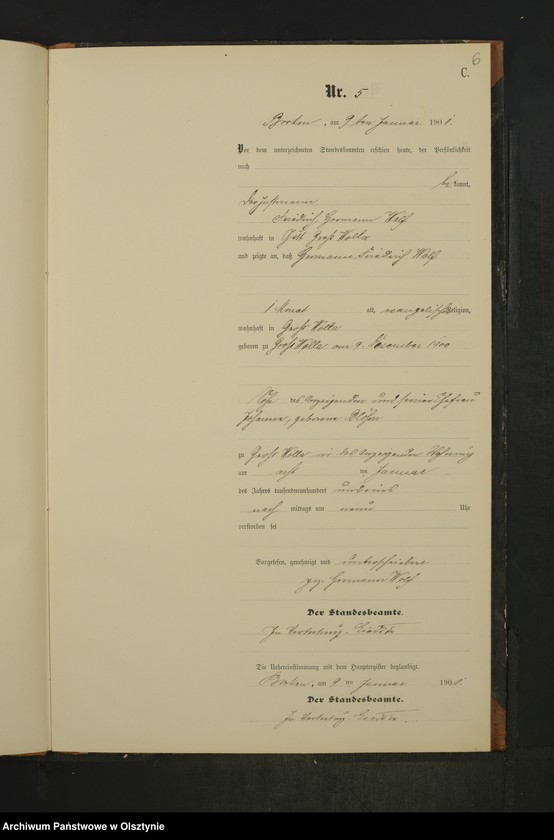 6
C.
Nr. 5
Borken, am 9ten Januar 1901.
Vor dem unterzeichneten Standesbeamten erschien heute, der Persönlichkeit
nach
be kannt,
der
Friedrich Hermann Wolf
wohnhaft in Gut Groß Wolla
und zeigte an, daß Hermann Friedrich Wolf
1 Monat alt, evangelischer Religion,
wohnhaft in Groß Wolla
geboren zu Groß Wolla am 9. Dezember 1900
Sohn des Anzeigenden und seiner Ehefrau
Johanna, geborene
zu Groß Wolla in des Anzeigenden Wohnung
am acht ten Januar
des Jahres tausendneunhundert und eins
nach mittags um neun Uhr
verstorben sei
Vorgelesen, genehmigt und unterschrieben
gez. Hermann Wolf
Der Standesbeamte.
In Vertretung.
Die Uebereinstimmung mit dem Hauptregister beglaubigt.
Borken, am 9. ten Januar 1901.
Der Standesbeamte.
In Vertretung.
Archiwum Państwowe w Olsztynie